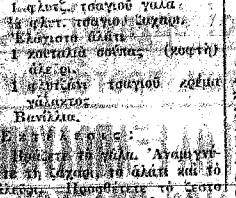 1 φλυτζ. τσαγιοῦ γάλα.
¼ φλυτ. τσαγιοῦ ζάχαρι.
Ἐλάχιστο ἁλάτι
1 κουταλιὰ σούπας (κοφτὴ)
ἀλεύρι.
1 φλυτζάνι τσαγιοῦ κρέμα
γάλακτος.
Βανίλλια.
Ἐκτέλεσις:
τὸ γάλα. Ἀναμιγνύ-
τε τὴ ζάχαρι, τὸ ἁλάτι καὶ τὸ
ἀλεύρι. Προσθέτετε τὸ ζεστὸ